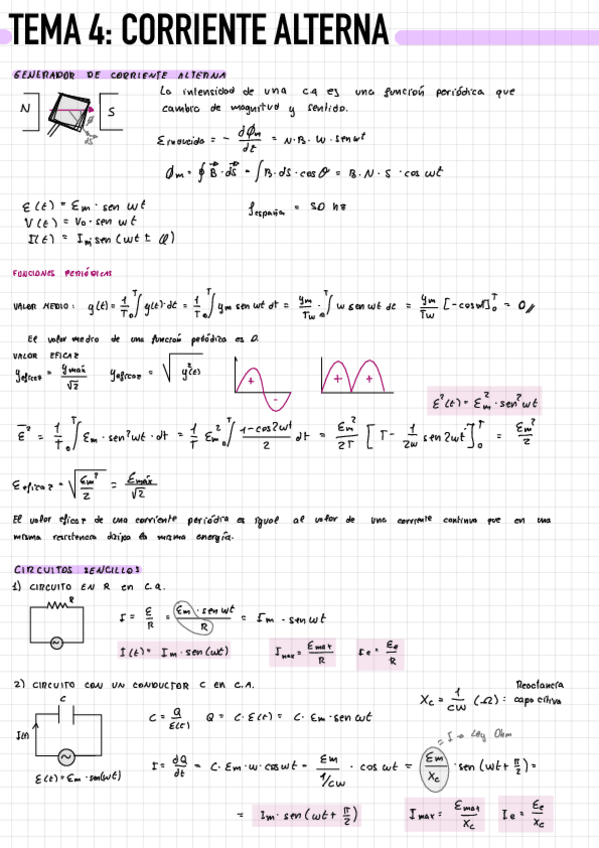 TEMA 4: CORRIENTE ALTERNA
GENERADOR DE CORRIENTE ALTERNA
N S
La intensidad de una c.a es una función periódica que
cambia de magnitud y sentido.
E inducida = - dΦm/dt = N·B·W·sen wt
Φm = ∮ B·dS = ∫B·ds·cosθ = B·N·S·cos wt
E(t) = Em·sen wt
V(t) = Vo·sen wt
I(t) = Im sen (wt ± φ)
f españa = 50 hz
FUNCIONES PERIÓDICAS
VALOR MEDIO: y(t) = 1/T ∫₀ᵀ y(t)·dt = 1/T ∫₀ᵀ ym sen wt dt = ym/Tw · ∫₀ᵀ w sen wt dt = ym/Tw [-coswt]₀ᵀ = 0
El valor medio de una función periódica es 0.
VALOR EFICAZ
y eficaz = y max/√2 y eficaz = √y²(t)
+ - + +
E²(t) = Em²·sen² wt
E² = 1/T ∫₀ᵀ Em·sen² wt·dt = 1/T Em² ∫₀ᵀ 1-cos2wt/2 dt = Em²/2T [T - 1/2w sen 2wt]₀ᵀ = Em²/2
E eficaz = √Em²/2 = E max/√2
El valor eficaz de una corriente periódica es igual al valor de una corriente continua que en una
misma resistencia disipa la misma energía.
CIRCUITOS SENCILLOS
1) CIRCUITO EN R en C.A.
R
I = E/R = Em·sen wt/R = Im·sen wt
I(t) = Im·sen(wt) I max = E max/R Ie = Ee/R
2) CIRCUITO CON UN CONDUCTOR C EN C.A.
C
I(t)
E(t) = Em·sen(wt)
Xc = 1/cw (Ω): Reactancia capacitiva
C = Q/E(t) Q = C·E(t) = C·Em·sen wt
= I → Ley Ohm
I = dQ/dt = C·Em·w·cos wt = Em/1/cw · cos wt = Em/Xc · sen (wt + π/2) =
= Im·sen (wt + π/2) I max = E max/Xc Ie = Ee/Xc